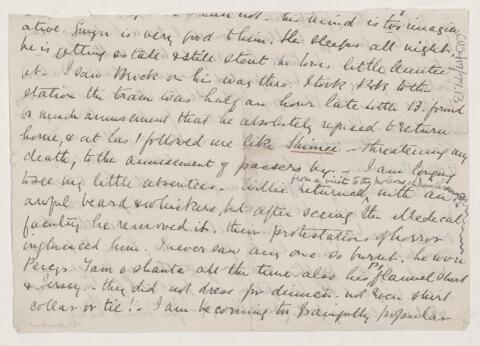 his mind is too imagin
ative. Gwyn is very good to him. He sleeps all night,
he is getting sedate & still stout he loves little Auntie
I saw Brick on his way thro. I took B & B to the
station the train was half an hour late little B. found
so much amusement that he absolutely refused to return
home, & at last followed me like Shimei - threatening my
death, to the amusement of passers by. - I am longing
to see my little absentees. Willie returned with an
from a visit to the
awful beard & whiskers, but after seeing the Medical
faculty he removed it, their protestations of horror
influenced him. I never saw any one so burnt, he wore
Percy's Tam o shanta all the time also his flannel shirt
& Jersey. - they did not dress for dinner. not even shirt
collar or tie! - I am becoming tranquilly popular